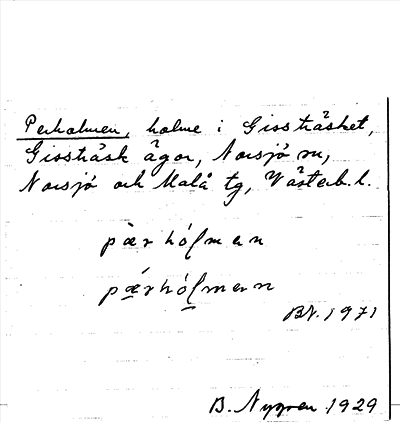 Perholmen, holme i Gissträsket,
Gissträsk ägor, Norsjö sn,
Norsjö och Malå tg, Västerb. l.
pæ̀r hólmen
pǽrhólmen
BN. 1971
B. Nygren 1929